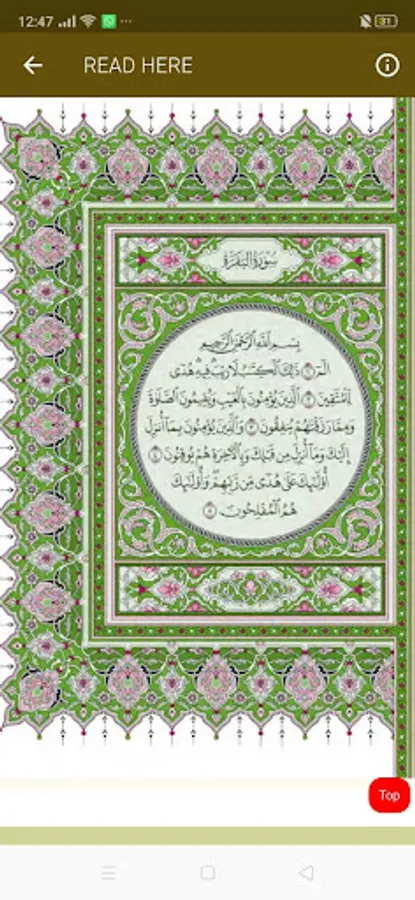 12:47
31
READ HERE
سُورَةُ البَقَرَةِ
بِسْمِ اللَّهِ الرَّحْمَٰنِ الرَّحِيمِ
الٓمٓ ۝١ ذَٰلِكَ الْكِتَٰبُ لَا رَيْبَ فِيهِ هُدًى
لِلْمُتَّقِينَ ۝٢ الَّذِينَ يُؤْمِنُونَ بِالْغَيْبِ وَيُقِيمُونَ الصَّلَوٰةَ
وَمِمَّا رَزَقْنَٰهُمْ يُنفِقُونَ ۝٣ وَالَّذِينَ يُؤْمِنُونَ بِمَا أُنزِلَ
إِلَيْكَ وَمَا أُنزِلَ مِن قَبْلِكَ وَبِالْآخِرَةِ هُمْ يُوقِنُونَ ۝٤
أُولَٰئِكَ عَلَىٰ هُدًى مِّن رَّبِّهِمْ وَأُولَٰئِكَ
هُمُ الْمُفْلِحُونَ ۝٥
Top